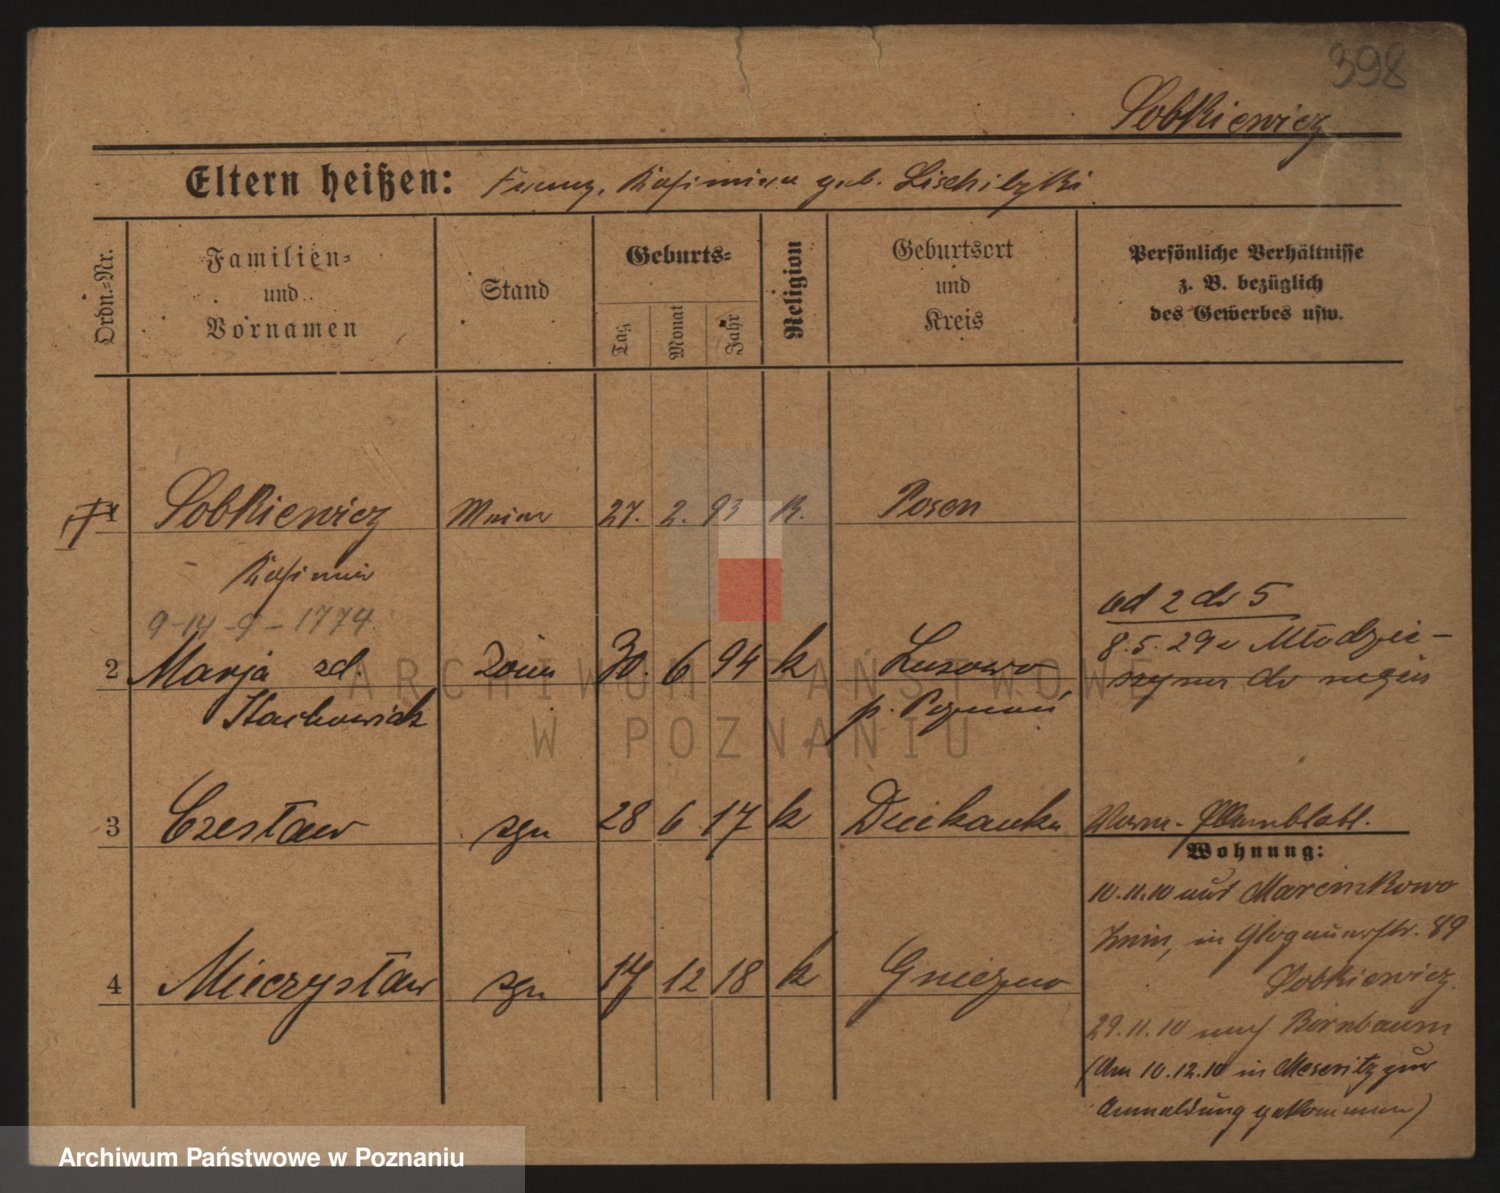 398
Sobkiewicz
Eltern heißen: Franz, Kasimira geb.
Ordn.-Nr.
Familien-
und
Vornamen
Stand
Geburts-
Tag
Monat
Jahr
Religion
Geburtsort
und
Kreis
Persönliche Verhältnisse
z. B. bezüglich
des Gewerbes usw.
1 Sobkiewicz 27. 2. 93 K. Posen
Kasimir
9-14-9-1774
od 2 do 5
8.5.29 Młodzie-
2 Marja zd. żona 30. 6 94 k Lusowo
Stachowiak p. Poznań
3 Czesław syn 28 6 17 k Dziekanka
Wohnung:
10.11.10 aus Marcinkowo
Znin, in Glogauerstr. 89
Sobkiewicz.
4 Mieczysław syn 14 12 18 k Gniezno
29.11.10 nach Birnbaum
(Am 10.12.10 in Meseritz zur
Anmeldung gekommen)
ARCHIWUM PAŃSTWOWE
W POZNANIU
Archiwum Państwowe w Poznaniu